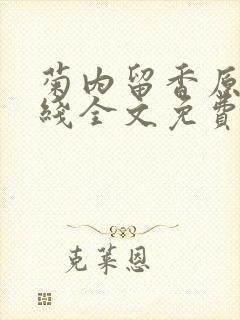 菊内留香原
线全文免費
克莱恩